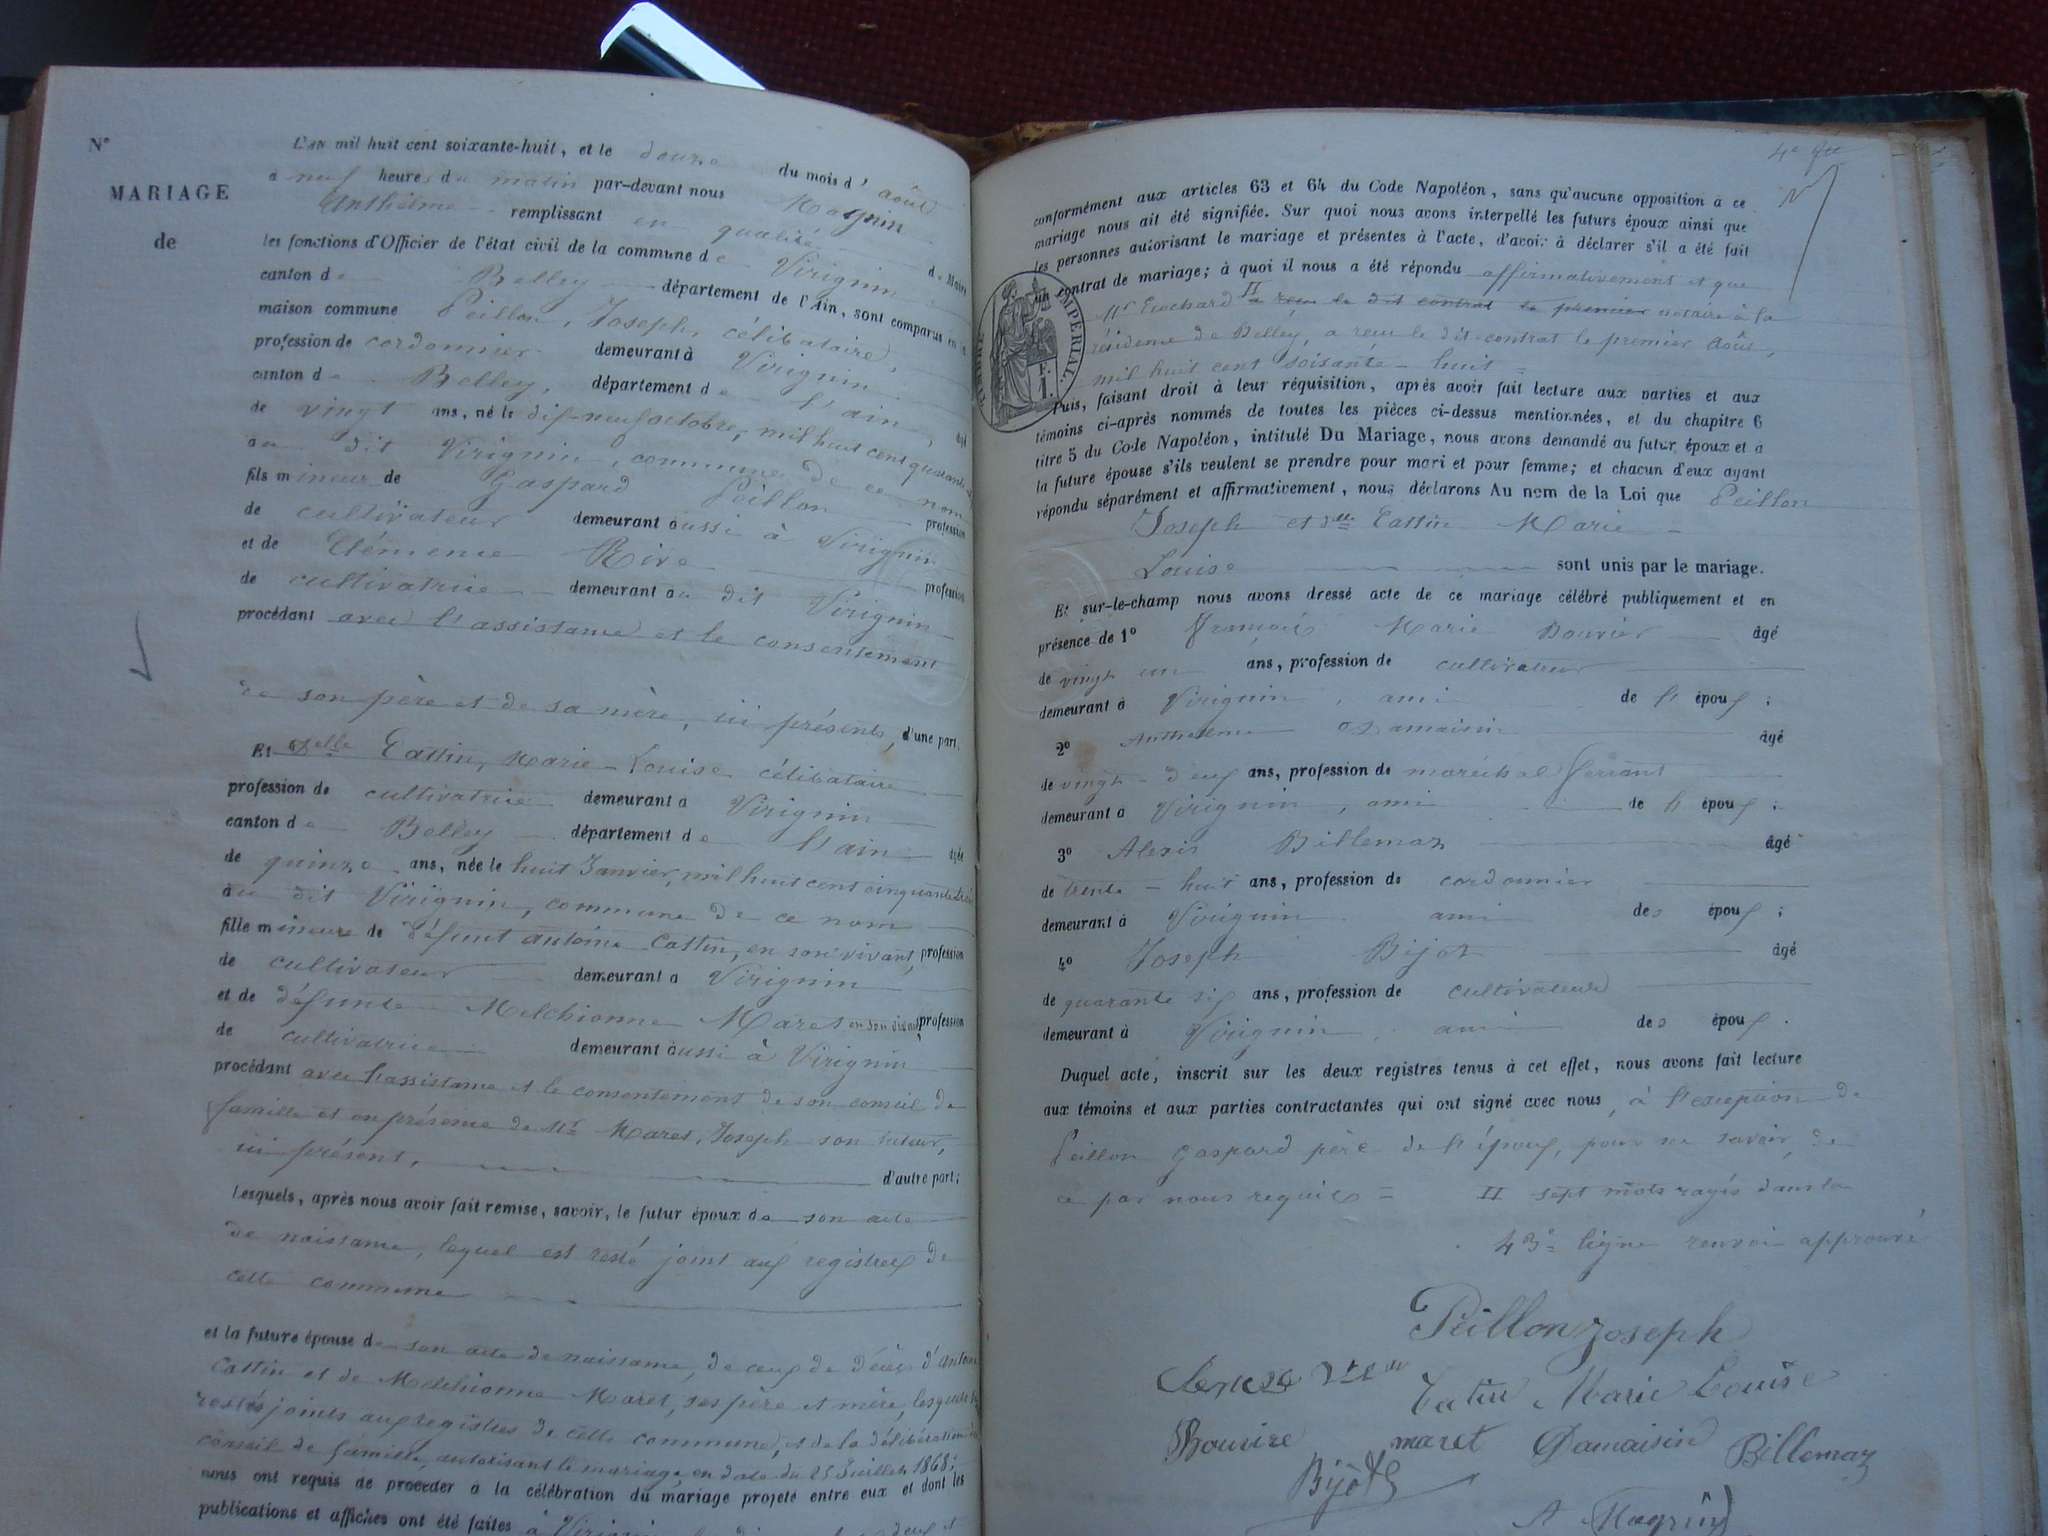 N°
MARIAGE
de
L'AN mil huit cent soixante-huit, et le douze du mois d'août
à neuf heures du matin par-devant nous Magnin
Anthelme remplissant en qualité de Maire
les fonctions d'Officier de l'état civil de la commune de Virignin
canton de Belley département de l'Ain, sont comparus en la
maison commune Peillon, Joseph, célibataire,
profession de cordonnier demeurant à Virignin
canton de Belley, département de l'ain, âgé
de vingt ans, né le dix-neuf octobre, mil huit cent quarante
au dit Virignin, commune de ce nom
fils mineur de Gaspard Peillon profession
de cultivateur demeurant aussi à Virignin
et de Clémence Rive profession
de cultivatrice demeurant au dit Virignin
procédant avec l'assistance et le consentement
de son père et de sa mère, ici présents, d'une part.
Et delle Cattin, Marie-Louise célibataire
profession de cultivatrice demeurant à Virignin
canton de Belley département de l'ain âgée
de quinze ans, née le huit Janvier, mil huit cent cinquante trois
au dit Virignin, commune de ce nom
fille mineure de défunt antoine Cattin, en son vivant, profession
de cultivateur demeurant à Virignin
et de défunte Melchionne Maret en son vivant profession
de cultivatrice demeurant aussi à Virignin
procédant avec l'assistance et le consentement de son conseil de
famille et en présence de Mr Maret, Joseph son tuteur,
ici présent, d'autre part;
Lesquels, après nous avoir fait remise, savoir, le futur époux de son acte
de naissance, lequel est resté joint aux registres de
cette commune
et la future épouse de son acte de naissance, de ceux de décès d'Antoine
Cattin et de Melchionne Maret, ses père et mère, lesquels
restés joints aux registres de cette commune, et de la délibération du
conseil de famille, autorisant le mariage, en date du 25 Juillet 1868;
nous ont requis de procéder à la célébration du mariage projeté entre eux et dont les
publications et affiches ont été faites à Virignin
4e
conformément aux articles 63 et 64 du Code Napoléon, sans qu'aucune opposition à ce
mariage nous ait été signifiée. Sur quoi nous avons interpellé les futurs époux ainsi que
les personnes autorisant le mariage et présentes à l'acte, d'avoir à déclarer s'il a été fait
un contrat de mariage; à quoi il nous a été répondu affirmativement et que
Mr Enochard II a reçu le dit contrat le premier notaire à la
résidence de Belley, a reçu le dit contrat le premier Août,
mil huit cent soixante-huit =
TIMBRE IMPERIAL.
F.
1.
Puis, faisant droit à leur réquisition, après avoir fait lecture aux parties et aux
témoins ci-après nommés de toutes les pièces ci-dessus mentionnées, et du chapitre 6
titre 5 du Code Napoléon, intitulé Du Mariage, nous avons demandé au futur époux et à
la future épouse s'ils veulent se prendre pour mari et pour femme; et chacun d'eux ayant
répondu séparément et affirmativement, nous déclarons Au nom de la Loi que Peillon
Joseph et delle Cattin Marie
Louise sont unis par le mariage.
Et sur-le-champ nous avons dressé acte de ce mariage célébré publiquement et en
présence de 1° François Marie Bouvier âgé
de vingt un ans, profession de cultivateur
demeurant à Virignin, ami de l'époux;
2° Anthelme Damaisin âgé
de vingt-deux ans, profession de maréchal ferrant
demeurant à Virignin, ami de l'époux;
3° Alexis Billemaz âgé
de trente-huit ans, profession de cordonnier
demeurant à Virignin, ami des époux;
4° Joseph Bijot âgé
de quarante six ans, profession de cultivateur
demeurant à Virignin, ami des époux.
Duquel acte, inscrit sur les deux registres tenus à cet effet, nous avons fait lecture
aux témoins et aux parties contractantes qui ont signé avec nous, à l'exception de
Peillon gaspard père de l'époux, pour ne savoir, de
ce par nous requis = II sept mots rayés dans la
43e ligne renvoi approuvé
Peillon Joseph
Catin Marie Louise
Bouvire maret Damaisin Billemaz
Bijot
A Magnin